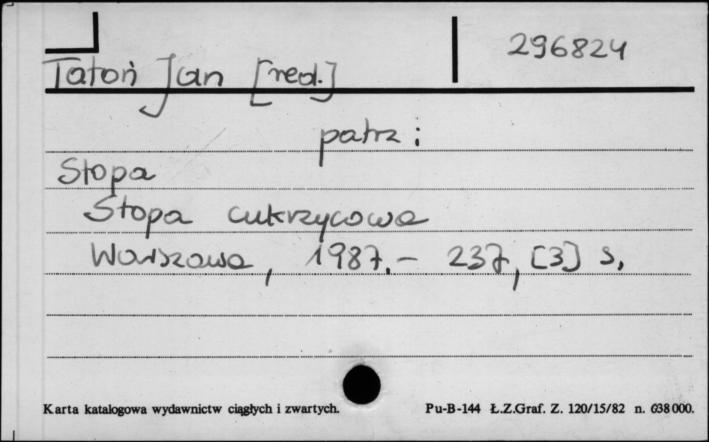 296824
Tatoń Jan [red.]
patrz:
Stopa
Stopa cukrzycowa
Warszawa, 1987.- 237, [3] s,
Karta katalogowa wydawnictw ciągłych i zwartych. Pu-B-144 Ł.Z.Graf. Z. 120/15/82 n. 638000.